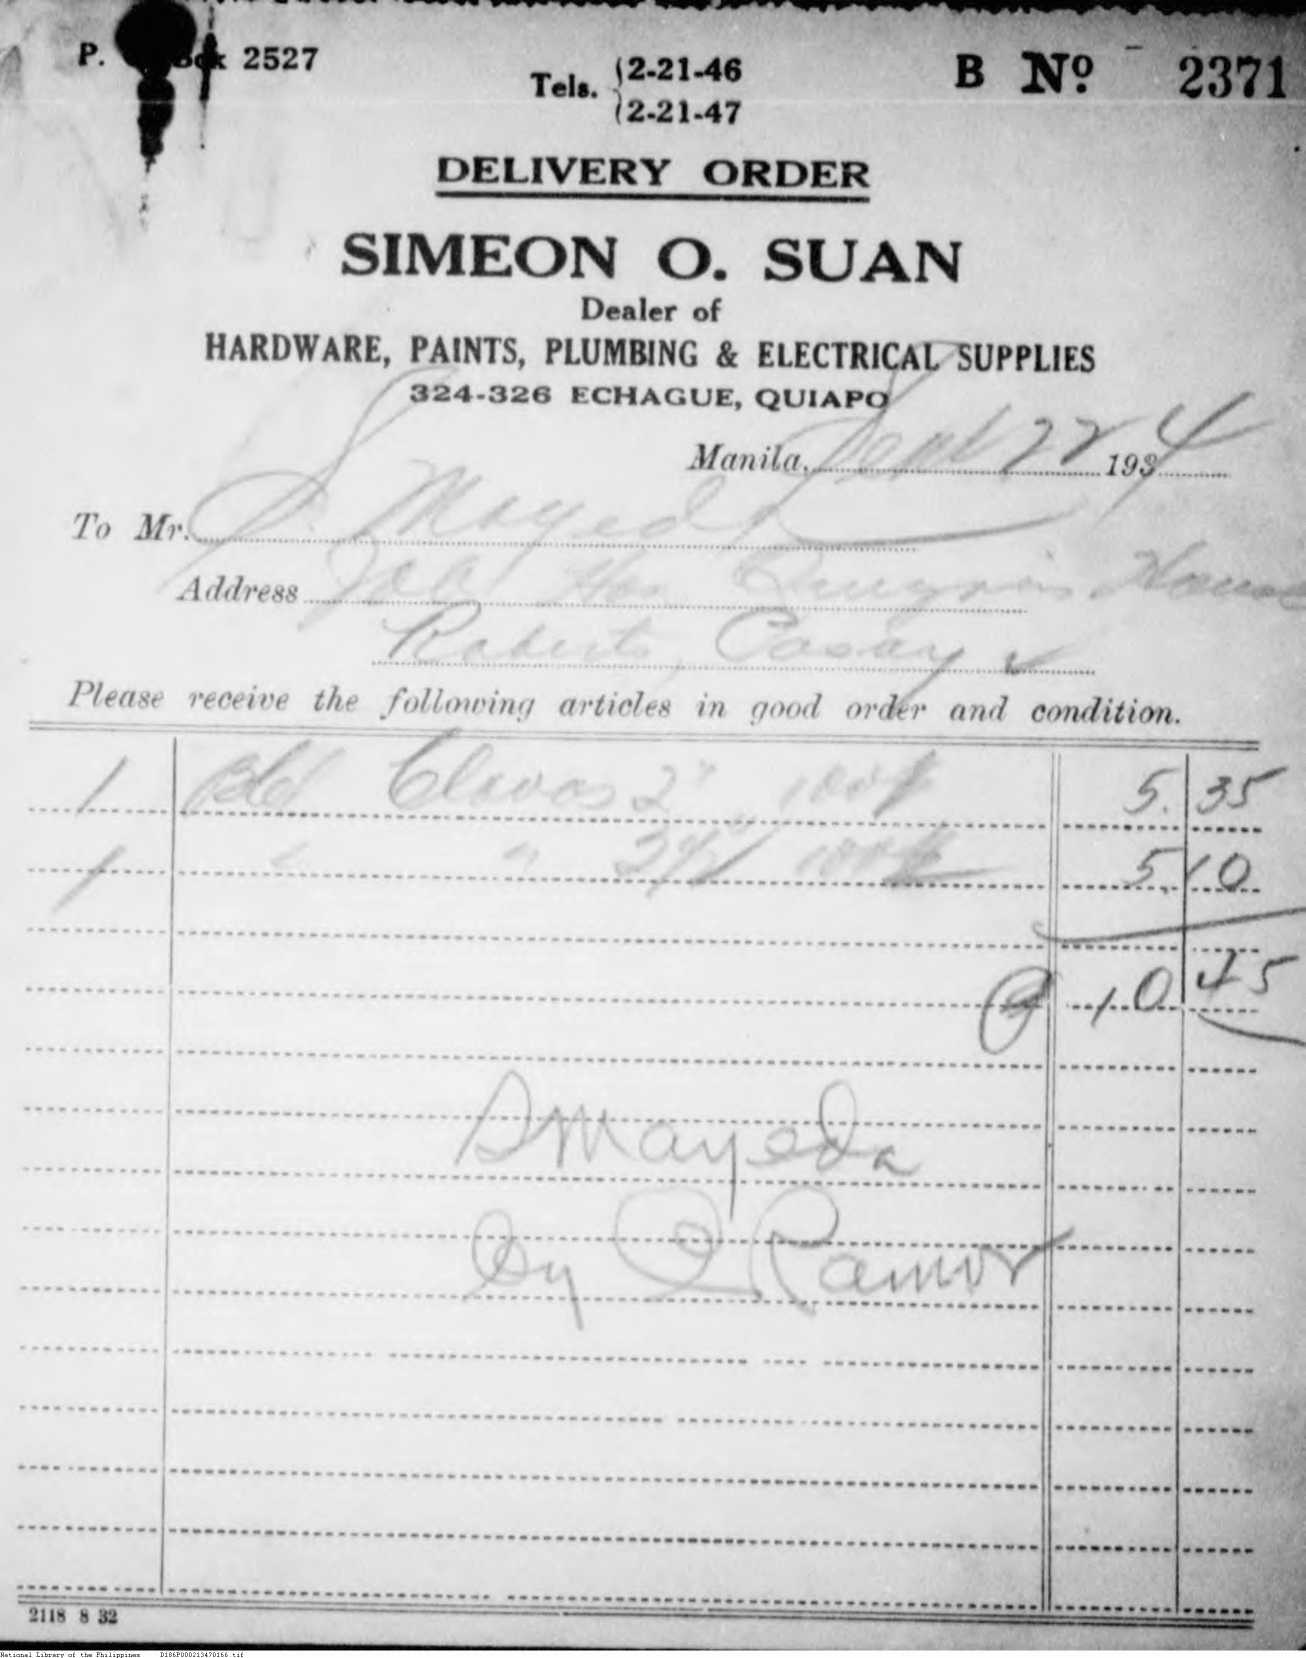 P. Box 2527
Tels. 2-21-46
2-21-47
B Nº 2371
DELIVERY ORDER
SIMEON O. SUAN
Dealer of
HARDWARE, PAINTS, PLUMBING & ELECTRICAL SUPPLIES
324-326 ECHAGUE, QUIAPO
Manila, Sept 22 1934
To Mr. S. Mayeda
Address House
Roberts, Pasay
Please receive the following articles in good order and condition.
1 Clavos 2" 5.35
1 " " 5.10
10 45
S Mayeda
by Ramos
2118 8 32
National Library of the Philippines D186P000213470166.tif